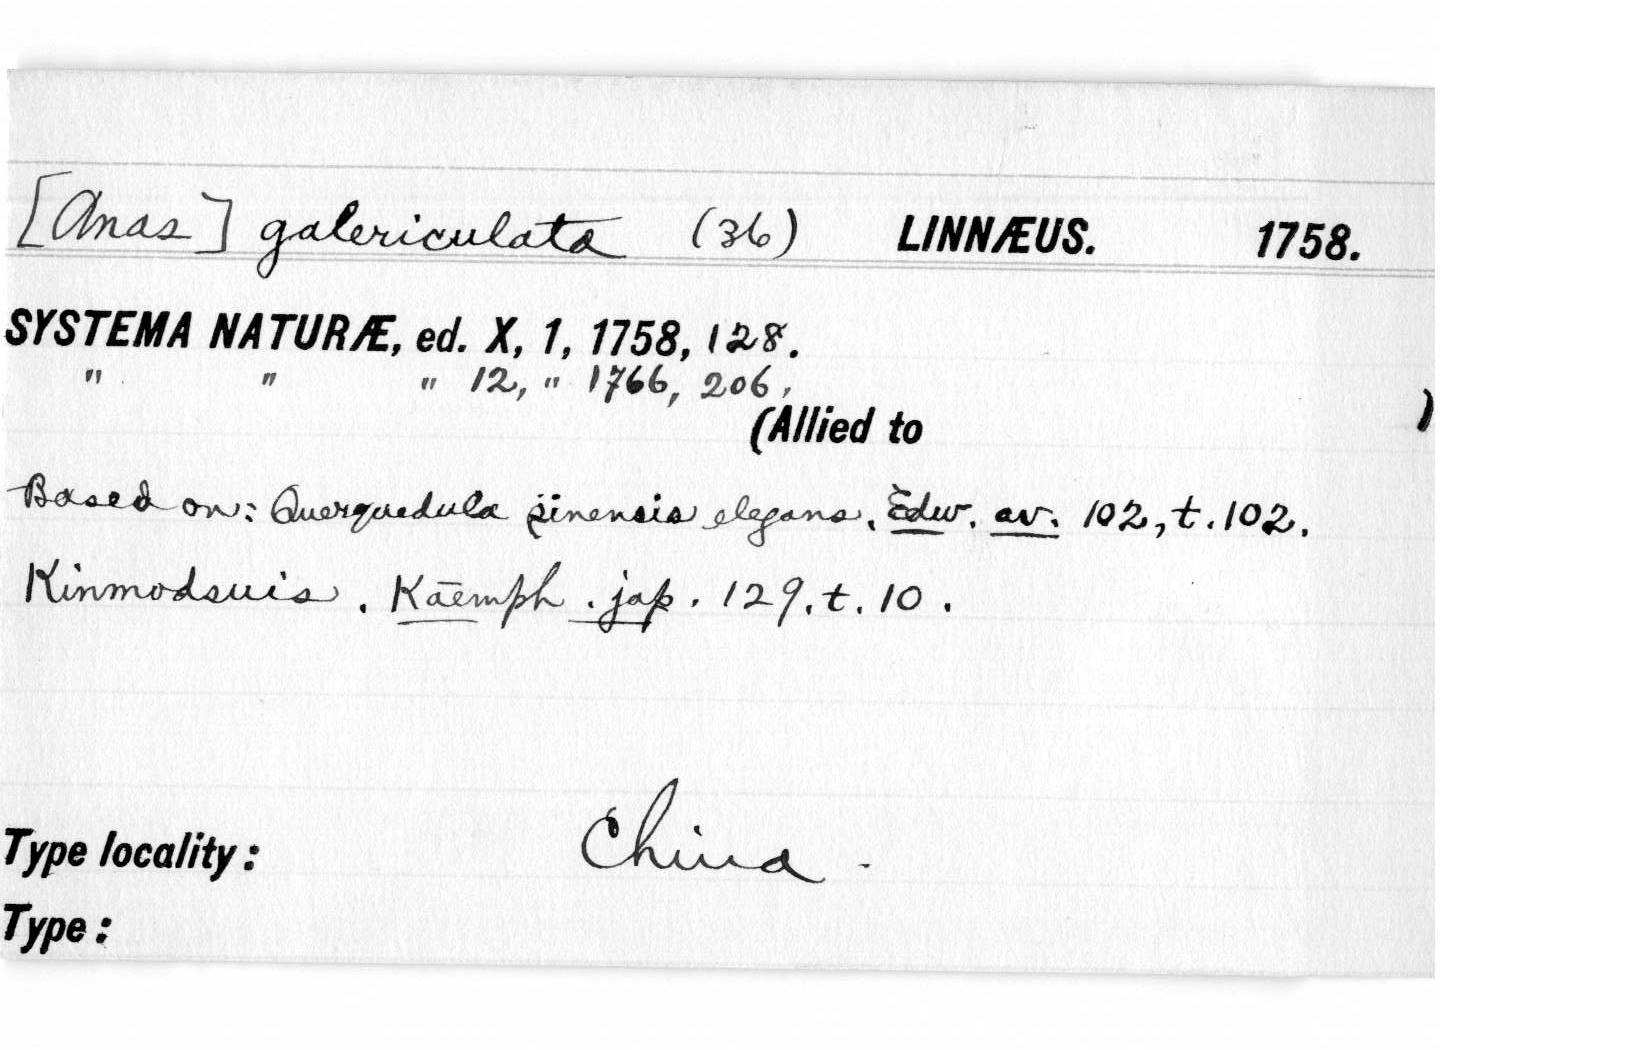 [Anas] galericulata (36) LINNÆUS. 1758.
SYSTEMA NATURÆ, ed. X, 1, 1758, 128.
" " " 12, " 1766, 206.
(Allied to )
Based on: Querquedula sinensis elegans. Edw. av. 102, t. 102.
Kinmodsuis. Kaemph. jap. 129. t. 10.
Type locality: China.
Type: